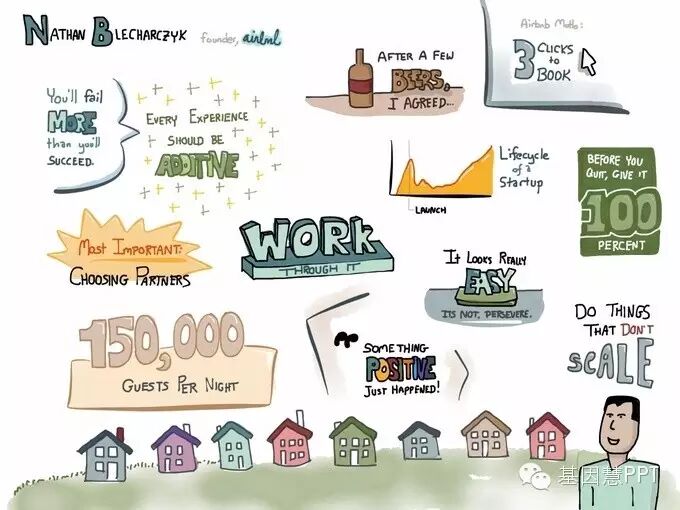 NATHAN BLECHARCZYK founder, airbnb
You'll fail
MORE
than you'll
SUCCEED.
EVERY EXPERIENCE
SHOULD BE
ADDITIVE
AFTER A FEW
BEERS,
I AGREED...
Airbnb Motto:
3 CLICKS
to
BOOK
Lifecycle
of a
Startup
LAUNCH
BEFORE YOU
QUIT, GIVE IT
100
PERCENT
MOST IMPORTANT:
CHOOSING PARTNERS
WORK
THROUGH IT
IT LOOKS REALLY
EASY
ITS NOT, PERSEVERE.
150,000
GUESTS PER NIGHT
SOMETHING
POSITIVE
JUST HAPPENED!
DO THINGS
THAT DON'T
SCALE
基因慧PPT